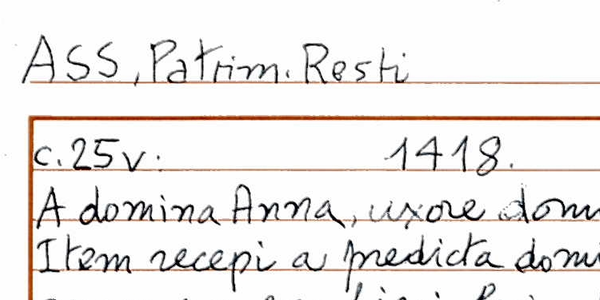 ASS, Patrim. Resti
c. 25v. 1418.
A domina Anna, uxore dom
Item recepi a predicta domi